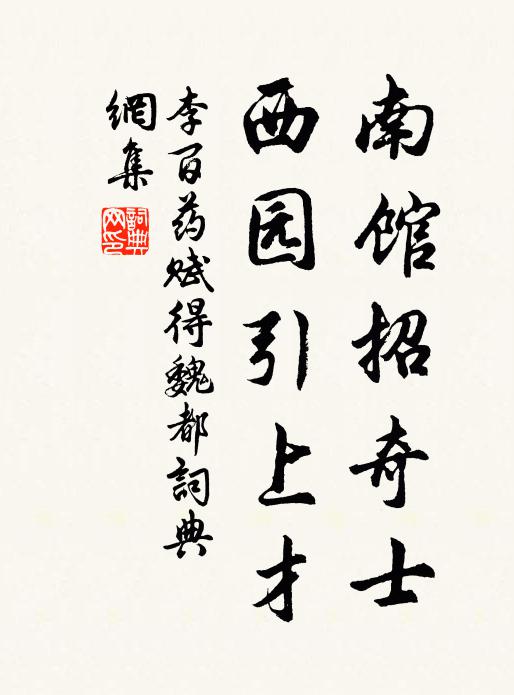 南馆招奇士
西园引上才
李百药赋得魏都詞典
網集
詞典
网印